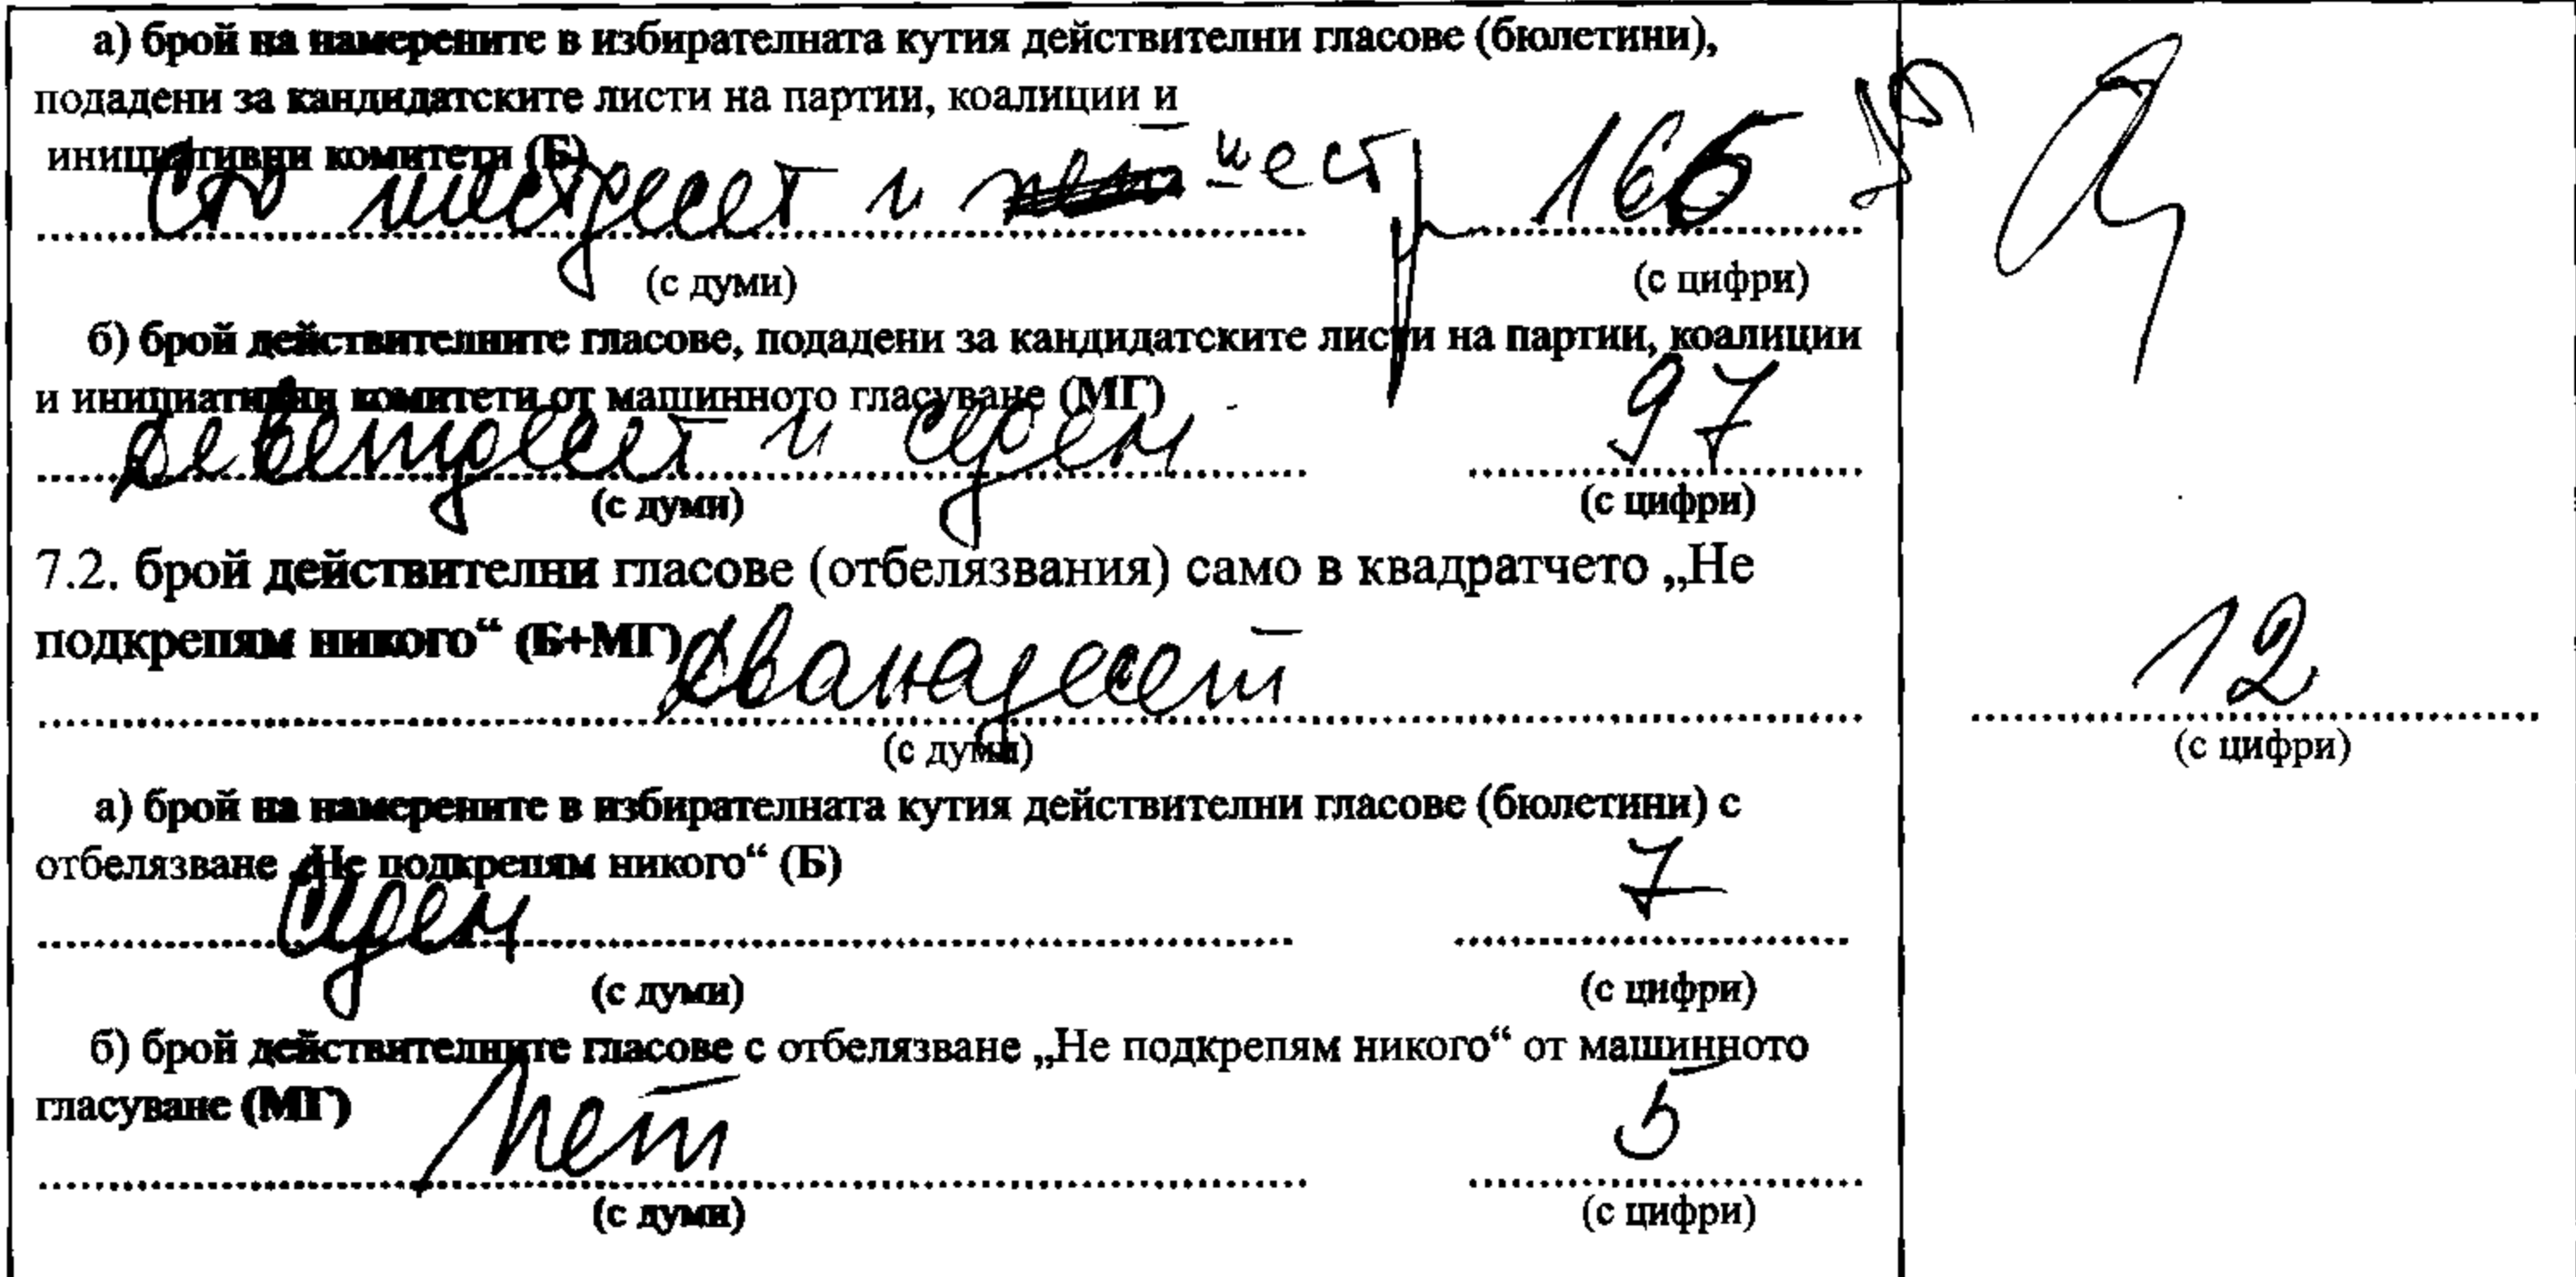 а) брой на намерените в избирателната кутия действителни гласове (бюлетини),
подадени за кандидатските листи на партии, коалиции и
инициативни комитети (Б)
сто шестдесет и шест 166
(с думи) (с цифри)
б) брой действителните гласове, подадени за кандидатските листи на партии, коалиции
и инициативни комитети от машинното гласуване (МГ)
деветдесет и седем 97
(с думи) (с цифри)
7.2. брой действителни гласове (отбелязвания) само в квадратчето „Не
подкрепям никого“ (Б+МГ)
дванадесет 12
(с думи) (с цифри)
а) брой на намерените в избирателната кутия действителни гласове (бюлетини) с
отбелязване „Не подкрепям никого“ (Б)
седем 7
(с думи) (с цифри)
б) брой действителните гласове с отбелязване „Не подкрепям никого“ от машинното
гласуване (МГ)
пет 5
(с думи) (с цифри)